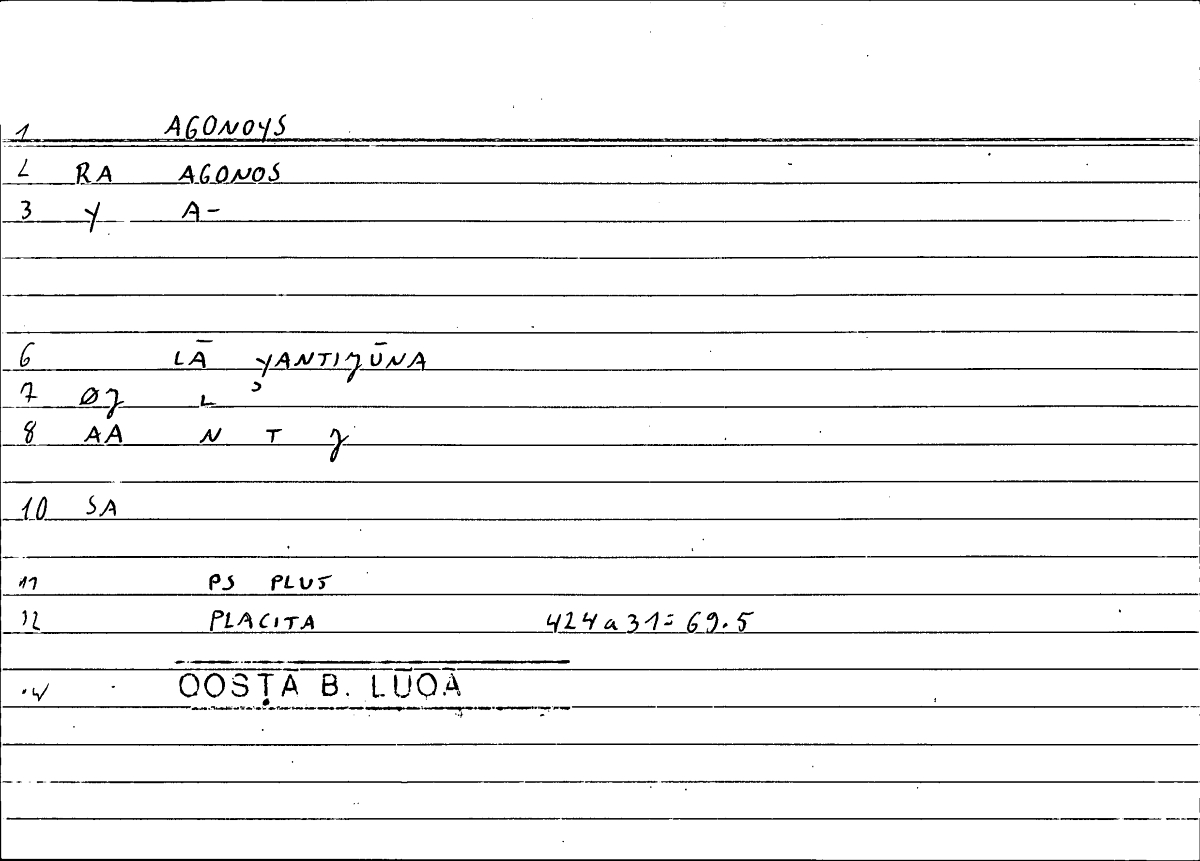 1 AGONOYS
2 RA AGONOS
3 Y A-
6 LĀ YANTIȜŪNA
7 ØȜ L ɔ
8 AA N T Ȝ
10 SA
11 PS PLUT
12 PLACITA 424a31 = 69.5
QOSṬĀ B. LŪQĀ